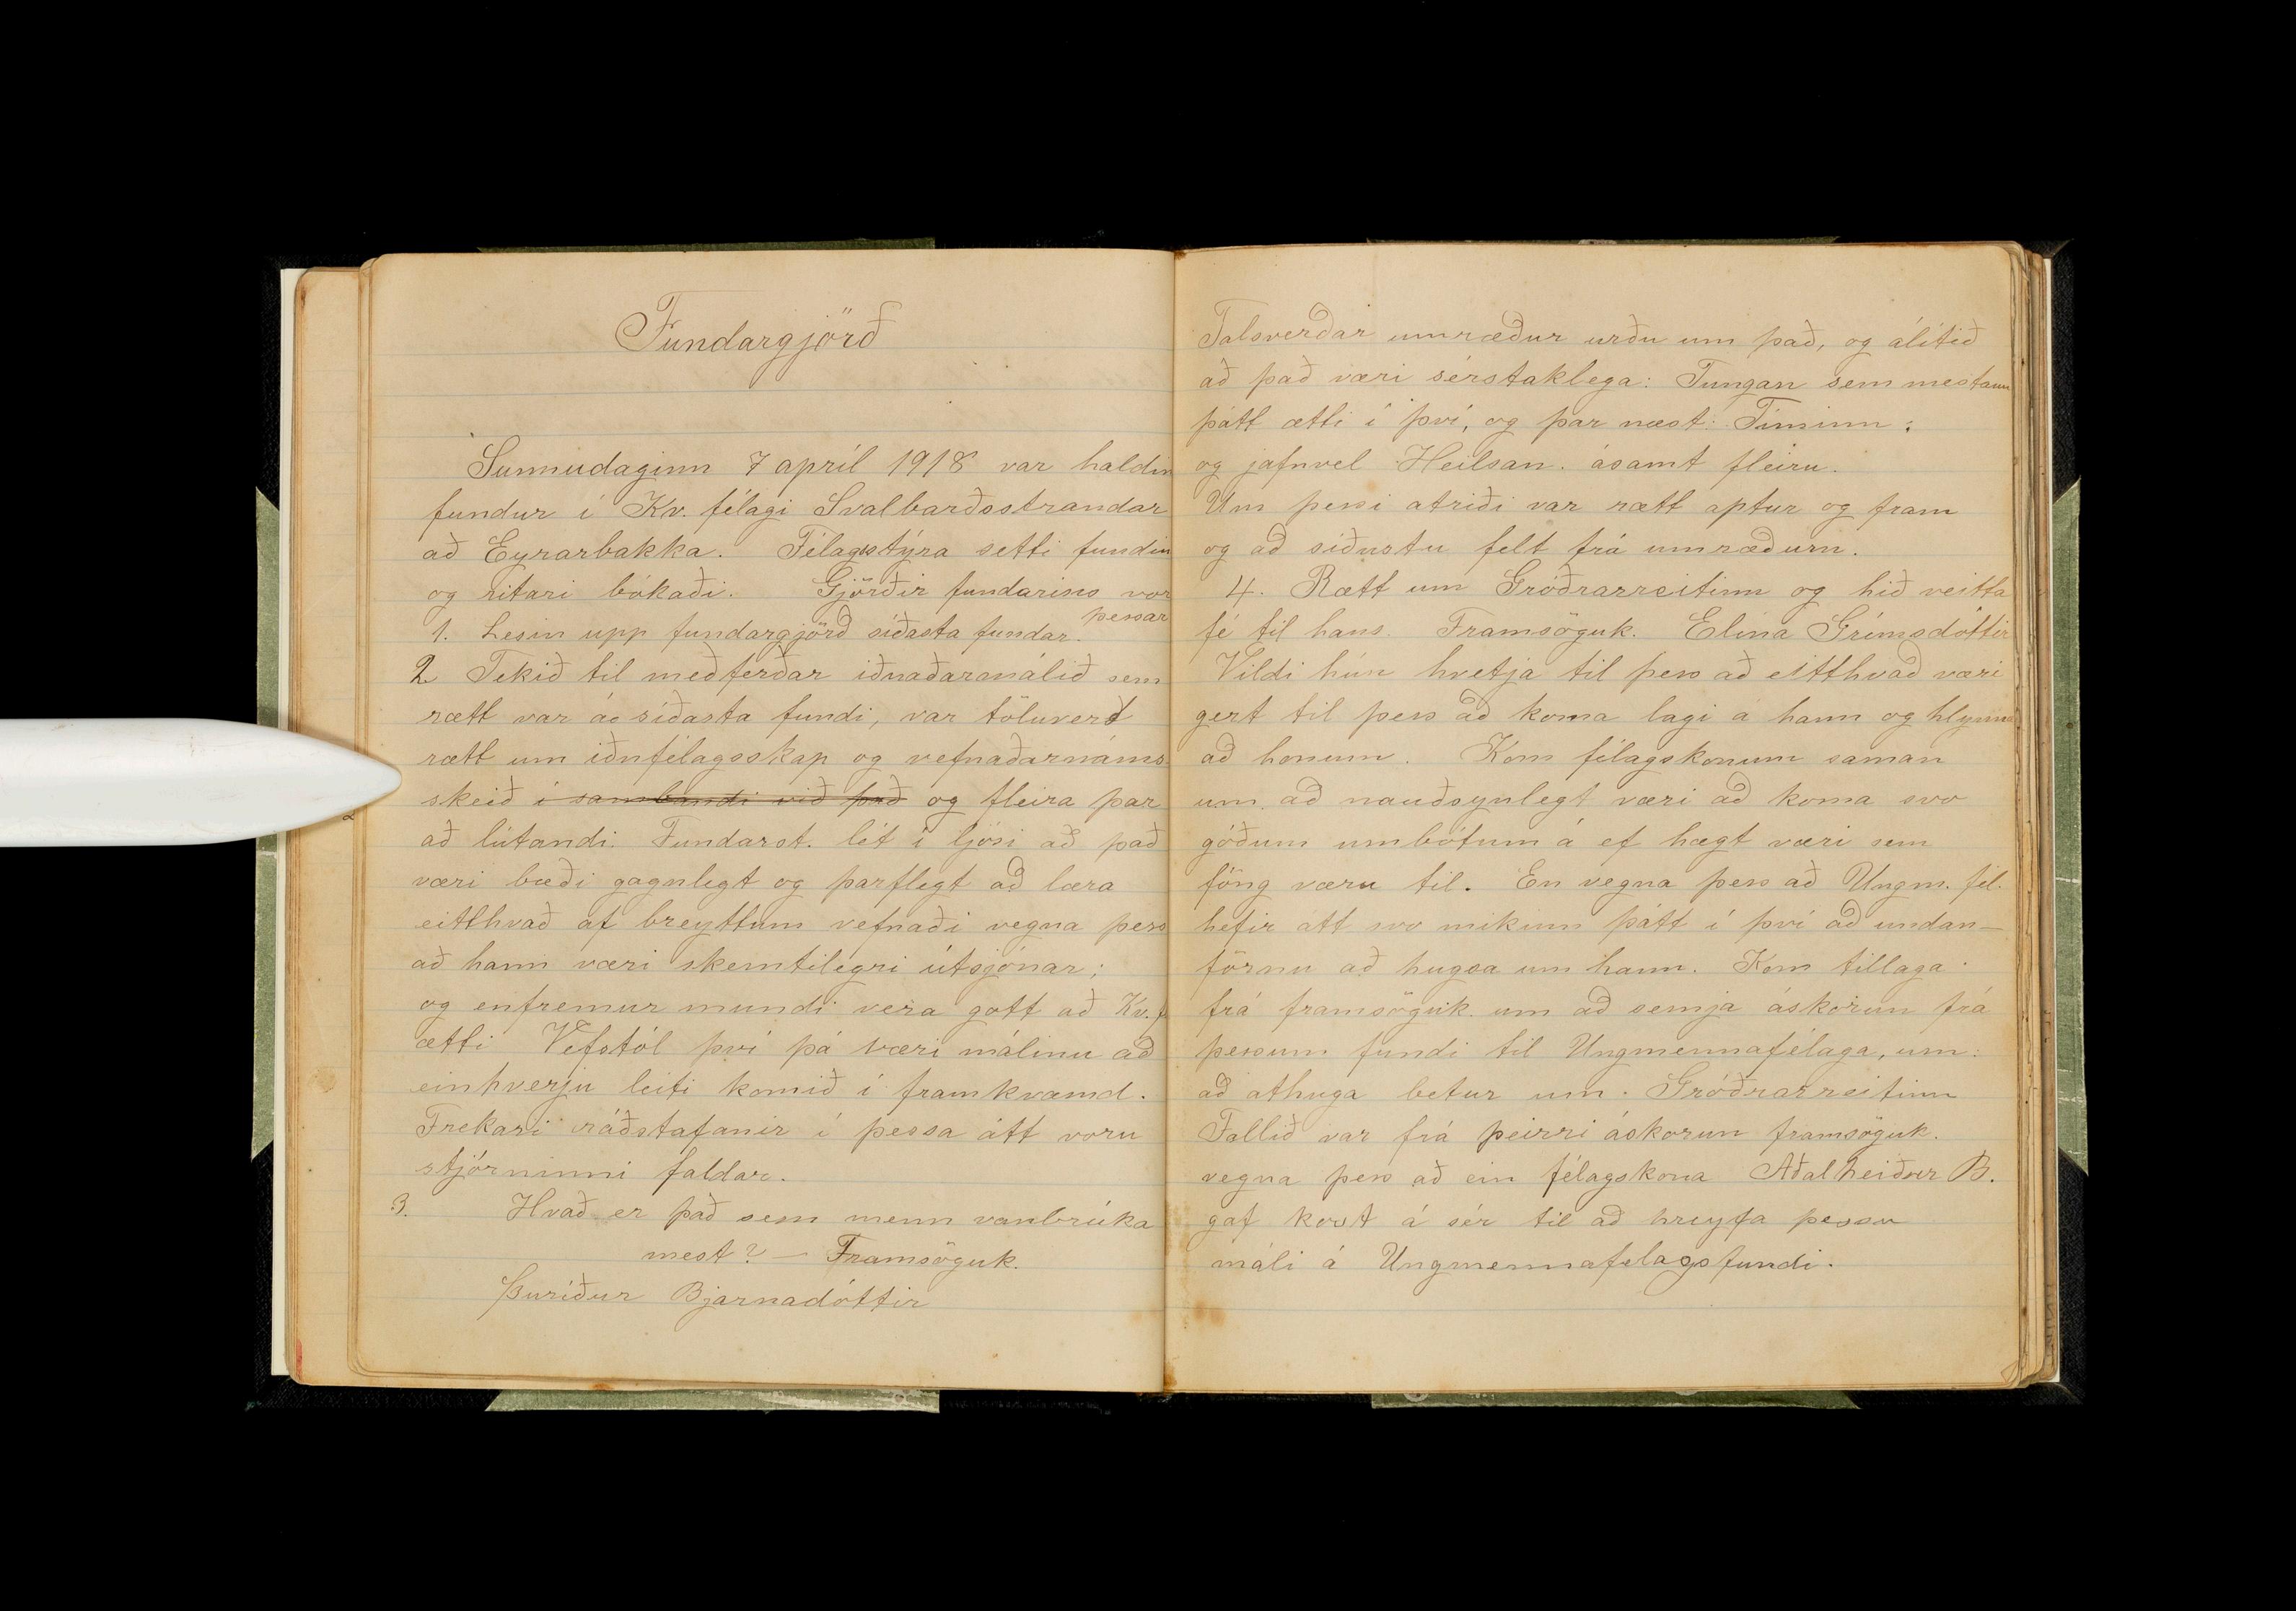 Fundargjörð
Sunnudaginn 7 apríl 1918 var haldin
fundur í Kv. félagi Svalbarðsstrandar
að Eyrarbakka. Félagsstýra setti fundin
og ritari bókaði. Gjörðir fundarins vor
þessar
1. Lesin upp fundargjörð síðasta fundar.
2 Tekið til meðferðar iðnaðarmálið sem
rætt var á síðasta fundi, var töluvert
rætt um iðnfélagsskap og vefnaðarnáms
skeið í sambandi við það og fleira þar
að lútandi. Fundarst. lét í ljósi að það
væri bæði gagnlegt og þarflegt að læra
eitthvað af breyttum vefnaði vegna þess
að hann væri skemtilegri útsjónar;
og enfremur mundi vera gott að Kv. f
ætti Vefstól því þá væri málinu að
einhverju leiti komið í framkvæmd.
Frekari ráðstafanir í þessa átt voru
stjórninni faldar.
3. Hvað er það sem menn vanbrúka
mest? — Framsöguk.
Þuríður Bjarnadóttir
Talsverðar umræður urðu um það, og álitið
að það væri sérstaklega: Tungan sem mestann
þátt ætti í því, og þar næst: Tíminn;
og jafnvel Heilsan. ásamt fleiru.
Um þessi atriði var rætt aptur og fram
og að síðustu felt frá umræðum.
4. Rætt um Gróðrarreitinn og hið veitta
fé til hans. Framsöguk. Elína Grímsdóttir
Vildi hún hvetja til þess að eitthvað væri
gert til þess að koma lagi á hann og hlynna
að honum. Kom félagskonum saman
um að nauðsynlegt væri að koma svo
góðum umbótum á ef hægt væri sem
föng væru til. En vegna þess að Ungm. fél.
hefir átt svo mikinn þátt í því að undan-
förnu að hugsa um hann. Kom tillaga
frá framsöguk. um að semja áskorun frá
þessum fundi til Ungmennafélaga, um:
að athuga betur um Gróðrarreitinn
Fallið var frá þeirri áskorun framsöguk.
vegna þess að ein félagskona Aðalheiður B.
gaf kost á sér til að hreyfa þessu
máli á Ungmennafelagsfundi.